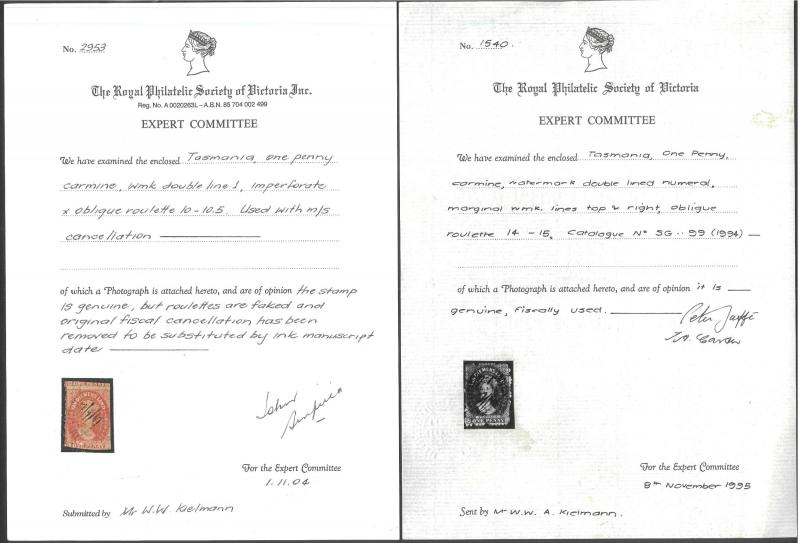 No. 2953
The Royal Philatelic Society of Victoria, Inc.
Reg. No. A 0020263L – A.B.N. 85 704 002 499
EXPERT COMMITTEE
We have examined the enclosed Tasmania, one penny
carmine, wmk double line 1, imperforate
x oblique roulette 10-10.5. Used with m/s
cancellation
of which a Photograph is attached hereto, and are of opinion the stamp
is genuine, but roulettes are faked and
original fiscal cancellation has been
removed to be substituted by ink manuscript
date
ONE PENNY
John
For the Expert Committee
1.11.04
Submitted by Mr W.W. Kielmann
No. 1540.
The Royal Philatelic Society of Victoria
EXPERT COMMITTEE
We have examined the enclosed Tasmania, One Penny,
carmine, watermark double lined numeral,
marginal wmk. lines top & right, oblique
roulette 14-15. Catalogue No SG..99 (1994)
of which a Photograph is attached hereto, and are of opinion it is
genuine, fiscally used.
Peter Jaffé
ONE PENNY
For the Expert Committee
8th November 1995
Sent by Mr W.W. A. Kielmann.